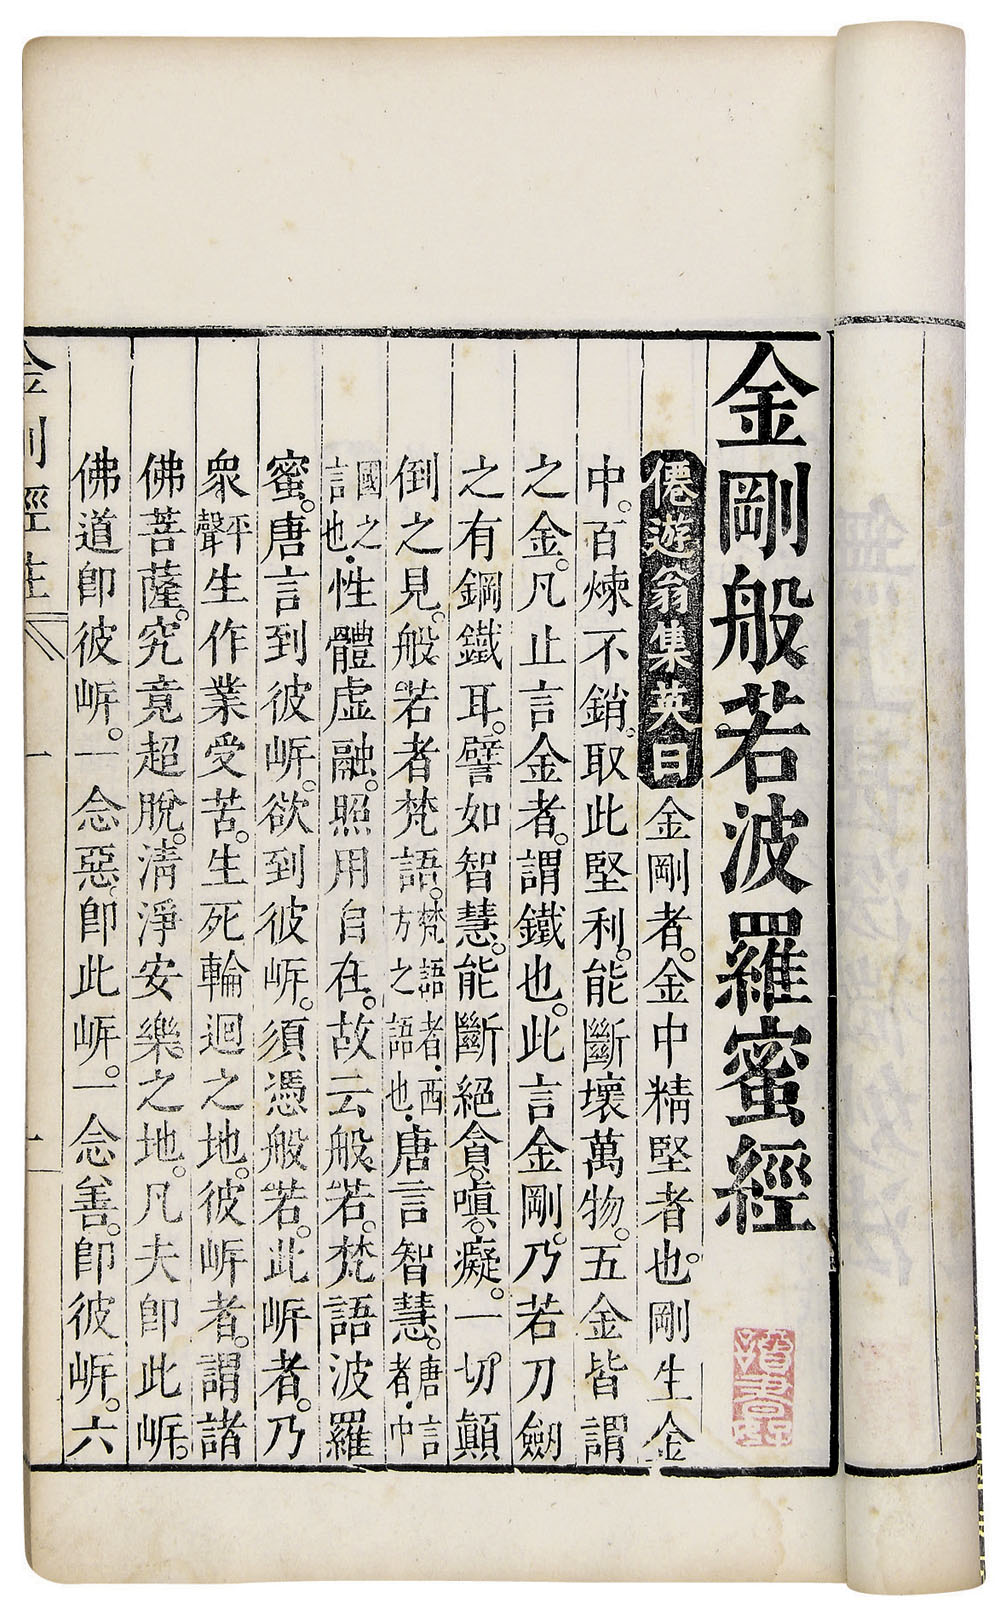 金剛般若波羅蜜經
僊遊翁集英曰金剛者。金中精堅者也。剛生金
中。百煉不銷。取此堅利。能斷壞萬物。五金皆謂
之金。凡止言金者。謂鐵也。此言金剛。乃若刀劒
之有鋼鐵耳。譬如智慧。能斷絕貪。嗔。癡。一切顛
倒之見。般若者梵語。梵語者·西方之語也·唐言智慧。唐言者·中
國之言也·性體虛融。照用自在。故云般若。梵語波羅
蜜。唐言到彼岍。欲到彼岍。須憑般若。此岍者。乃
衆平聲生作業受苦。生死輪迴之地。彼岍者。謂諸
佛菩薩。究竟超脫。清淨安樂之地。凡夫卽此岍。
佛道卽彼岍。一念惡。卽此岍。一念善。卽彼岍。六
金剛經註 一